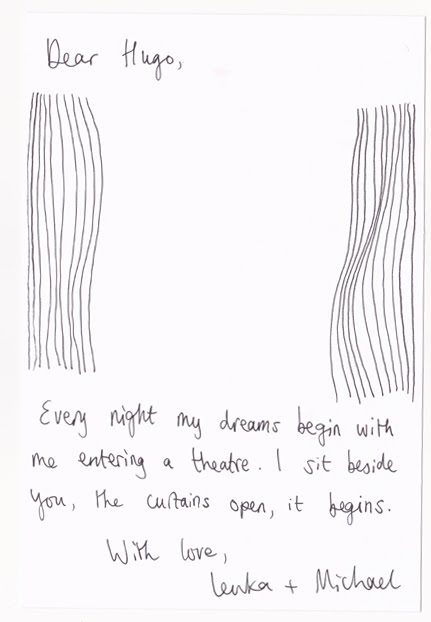 Dear Hugo,
Every night my dreams begin with
me entering a theatre. I sit beside
you, the curtains open, it begins.
With love,
Lenka + Michael